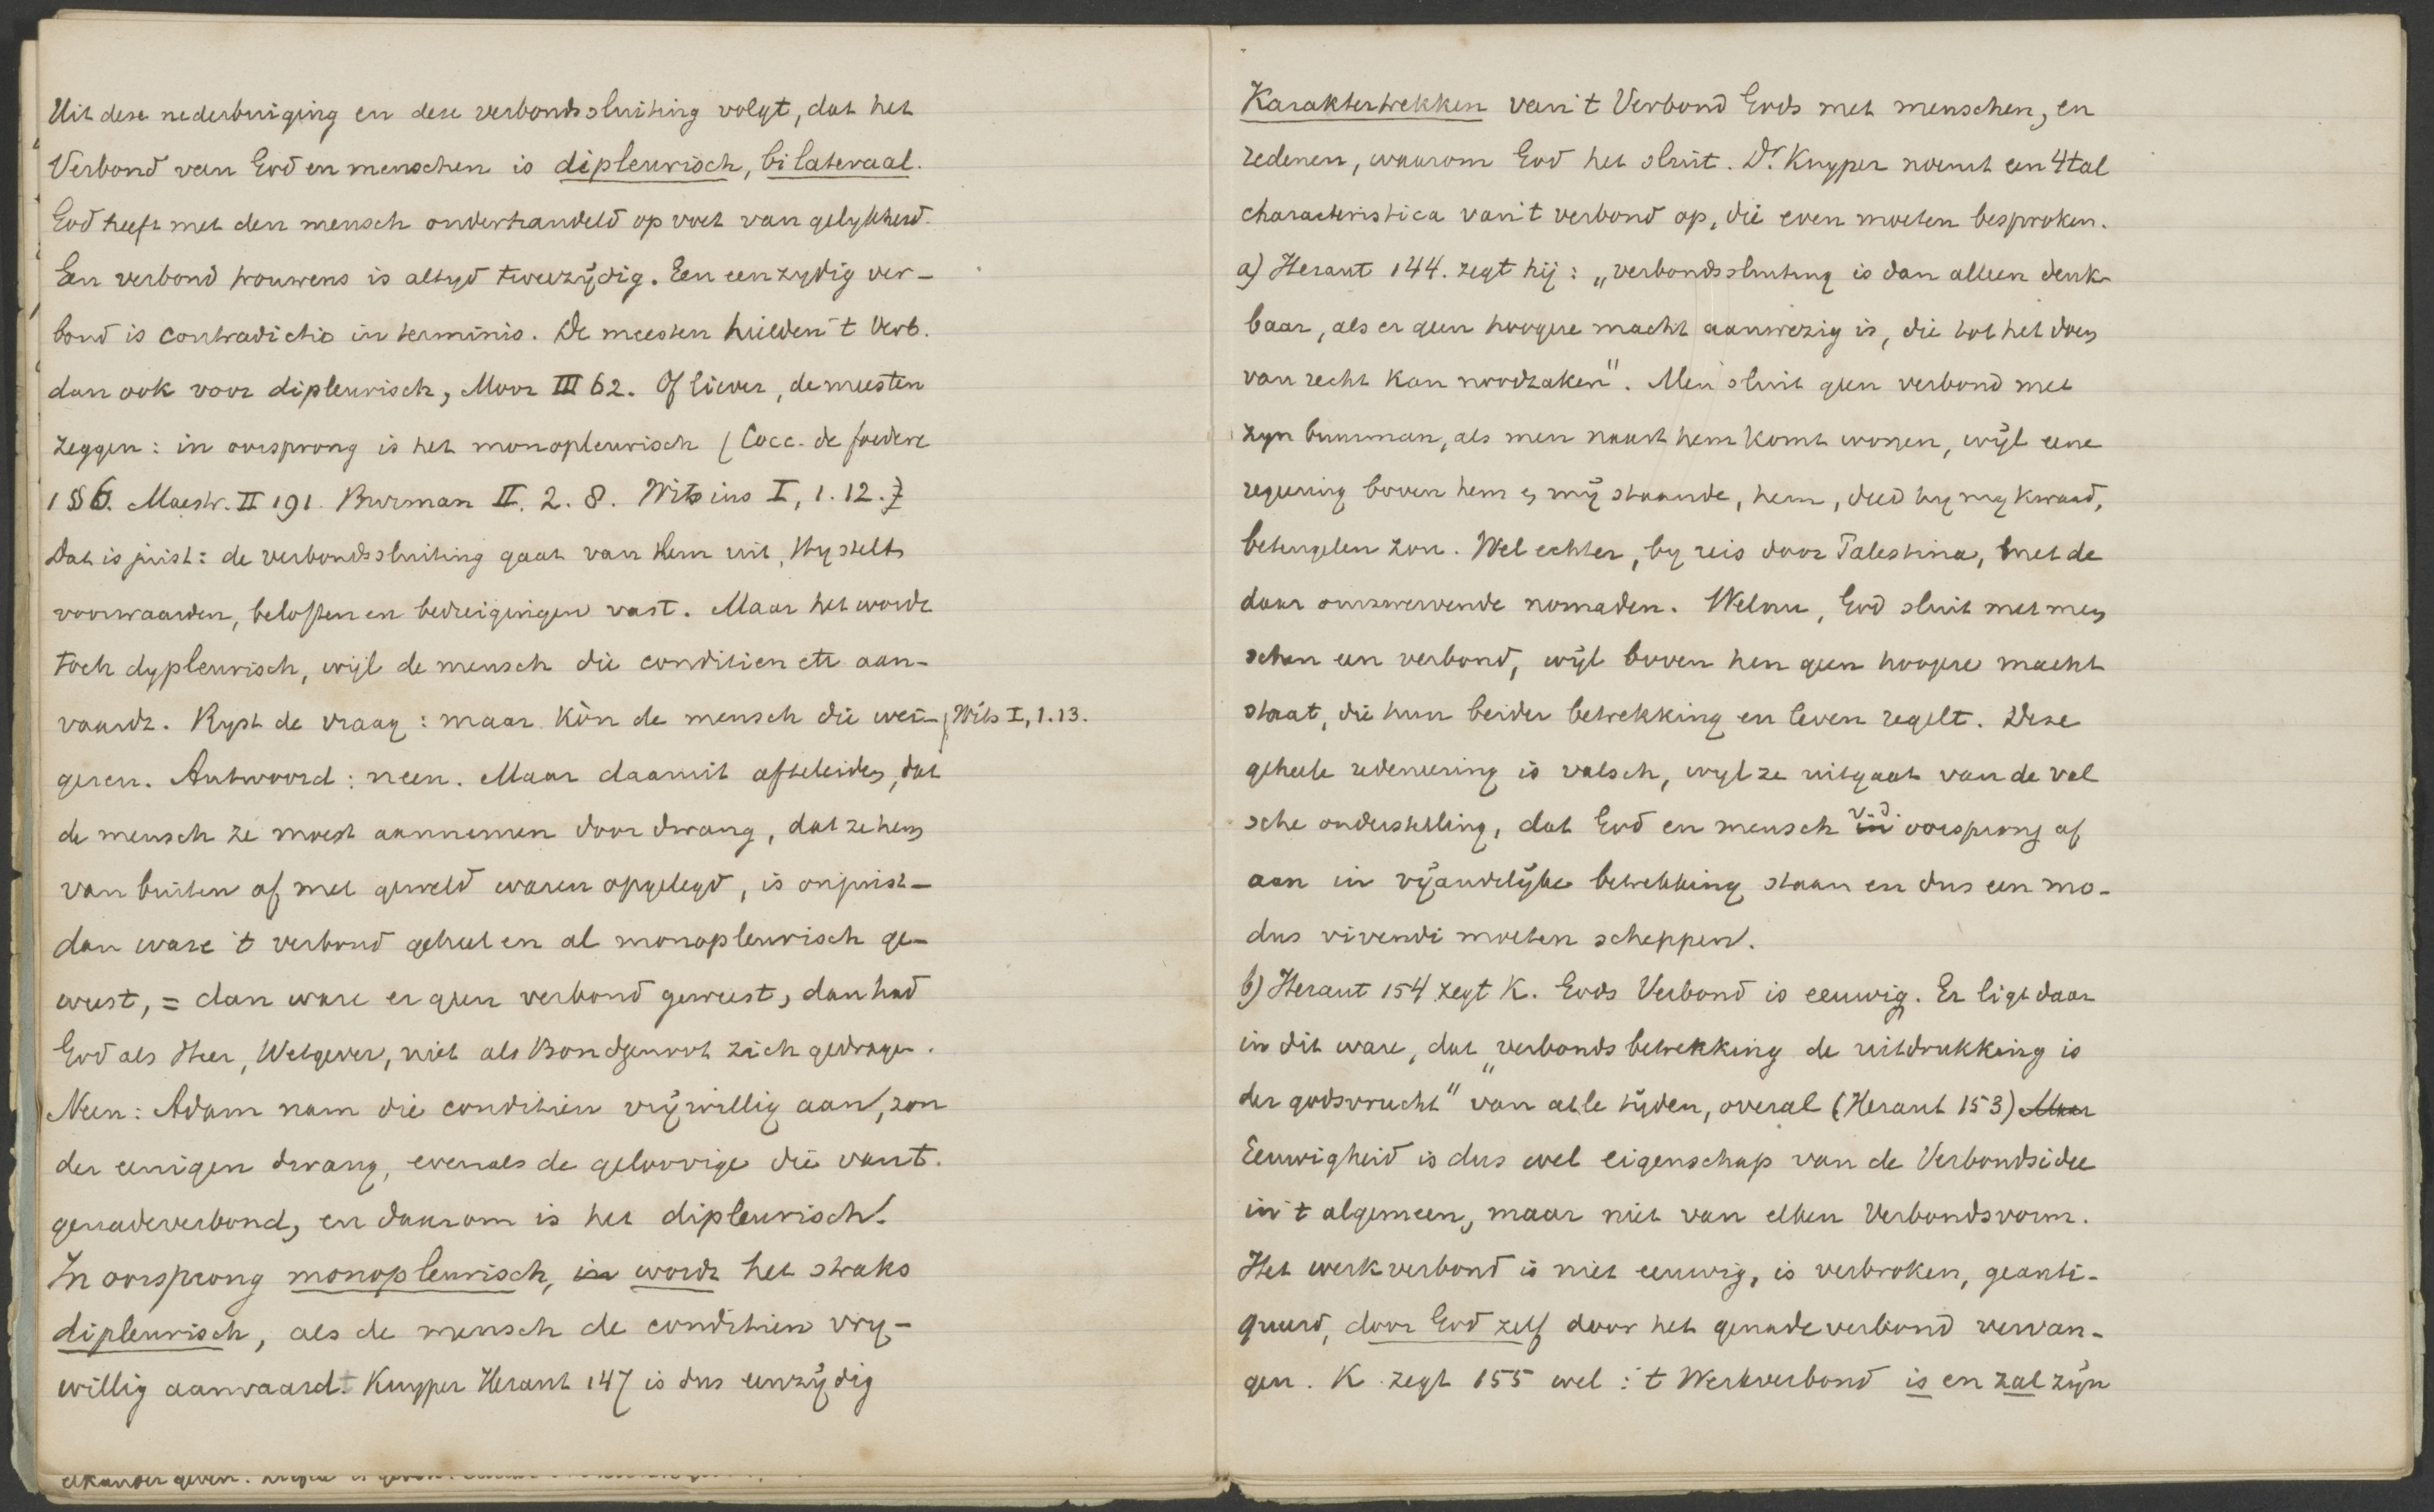 Uit deze nederbuiging en deze verbondssluiting volgt, dat het
Verbond van God en menschen is dipleurisch, bilateraal.
God heeft met den mensch onderhandeld op voet van gelykheid.
Een verbond trouwens is altyd tweezijdig. Een eenzydig ver-
bond is contradictio in terminis. De meesten hielden 't Verb.
dan ook voor dipleurisch, Moor III 62. Of liever, de meesten
zeggen: in oorsprong is het monopleurisch (Cocc. de foedere
1 § 6. Maestr. II 191. Burman II. 2. 8. Witsius I, 1. 12.
Dat is juist: de verbondssluiting gaat van Hem uit, Hy stelt
voorwaarden, beloften en bedreigingen vast. Maar het wordt
toch dypleurisch, wijl de mensch die conditien etc aan-
vaardt. Ryst de vraag: maar kòn de mensch die wei- Wits I, 1.13.
geren. Antwoord: neen. Maar daaruit afteleiden, dat
de mensch ze moest aannemen door dwang, dat ze hem
van buiten af met geweld waren opgelegd, is onjuist-
dan ware 't verbond geheel en al monopleurisch ge-
weest, = dan ware er geen verbond geweest, dan had
God als Heer, Wetgever, niet als Bondgenoot zich gedragen.
Neen: Adam nam die conditien vrijwillig aan, zon
der eenigen dwang, evenals de geloovige die van t.
genadeverbond, en daarom is het dipleurisch.
In oorsprong monopleurisch, is wordt het straks
dipleurisch, als de mensch de conditien vry-
willig aanvaardt. Kuyper Heraut 147 is dus eenzijdig
Karaktertrekken van 't Verbond Gods met menschen, en
redenen, waarom God het sluit. Dr. Kuyper noemt een 4tal
characteristica van 't verbond op, die even moeten besproken.
a) Heraut 144. zegt hij: „verbondssluiting is dan alleen denk-
baar, als er geen hoogere macht aanwezig is, die tot het doen
van recht kan noodzaken". Men sluit geen verbond met
zyn buurman, als men naast hem komt wonen, wijl eene
regeering boven hem en mij staande, hem, deed hy my kwaad,
beteugelen zou. Wel echter, by reis door Palestina, met de
daar omzwervende nomaden. Welnu, God sluit met men
schen een verbond, wijl boven hen geen hoogere macht
staat, die hun beider betrekking en leven regelt. Deze
geheele redeneering is valsch, wyl ze uitgaat van de val
sche onderstelling, dat God en mensch in v.d. oorsprong af
aan in vijandelijke betrekking staan en dus een mo-
dus vivendi moeten scheppen.
b) Heraut 154 zegt K. Gods Verbond is eeuwig. Er ligt daar
in dit ware, dat „verbondsbetrekking de uitdrukking is
der godsvrucht" van alle tijden, overal (Heraut 153) Maar
Eeuwigheid is dus wel eigenschap van de Verbondsidee
in 't algemeen, maar niet van elken Verbondsvorm.
Het werkverbond is niet eeuwig, is verbroken, geanti-
queerd, door God zelf door het genadeverbond vervan-
gen. K. zegt 155 wel: 't Werkverbond is en zal zijn
elkander geven.